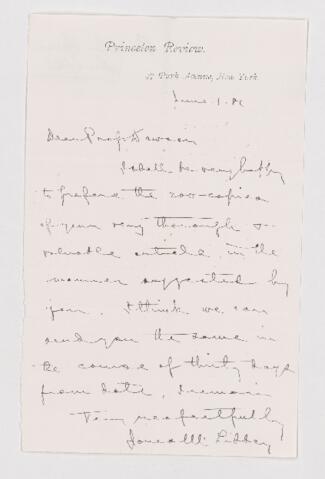 Princeton Review.
37 Park Avenue, New York.
June 1. 80
Dear Prof. Dawson
I shall be very happy
to prepare the 200 copies
of your very thorough &
valuable article, in the
manner suggested by
you. I think we can
send you the same in
the course of thirty days
from date, I remain
Very respectfully
Jonas M. Libbey